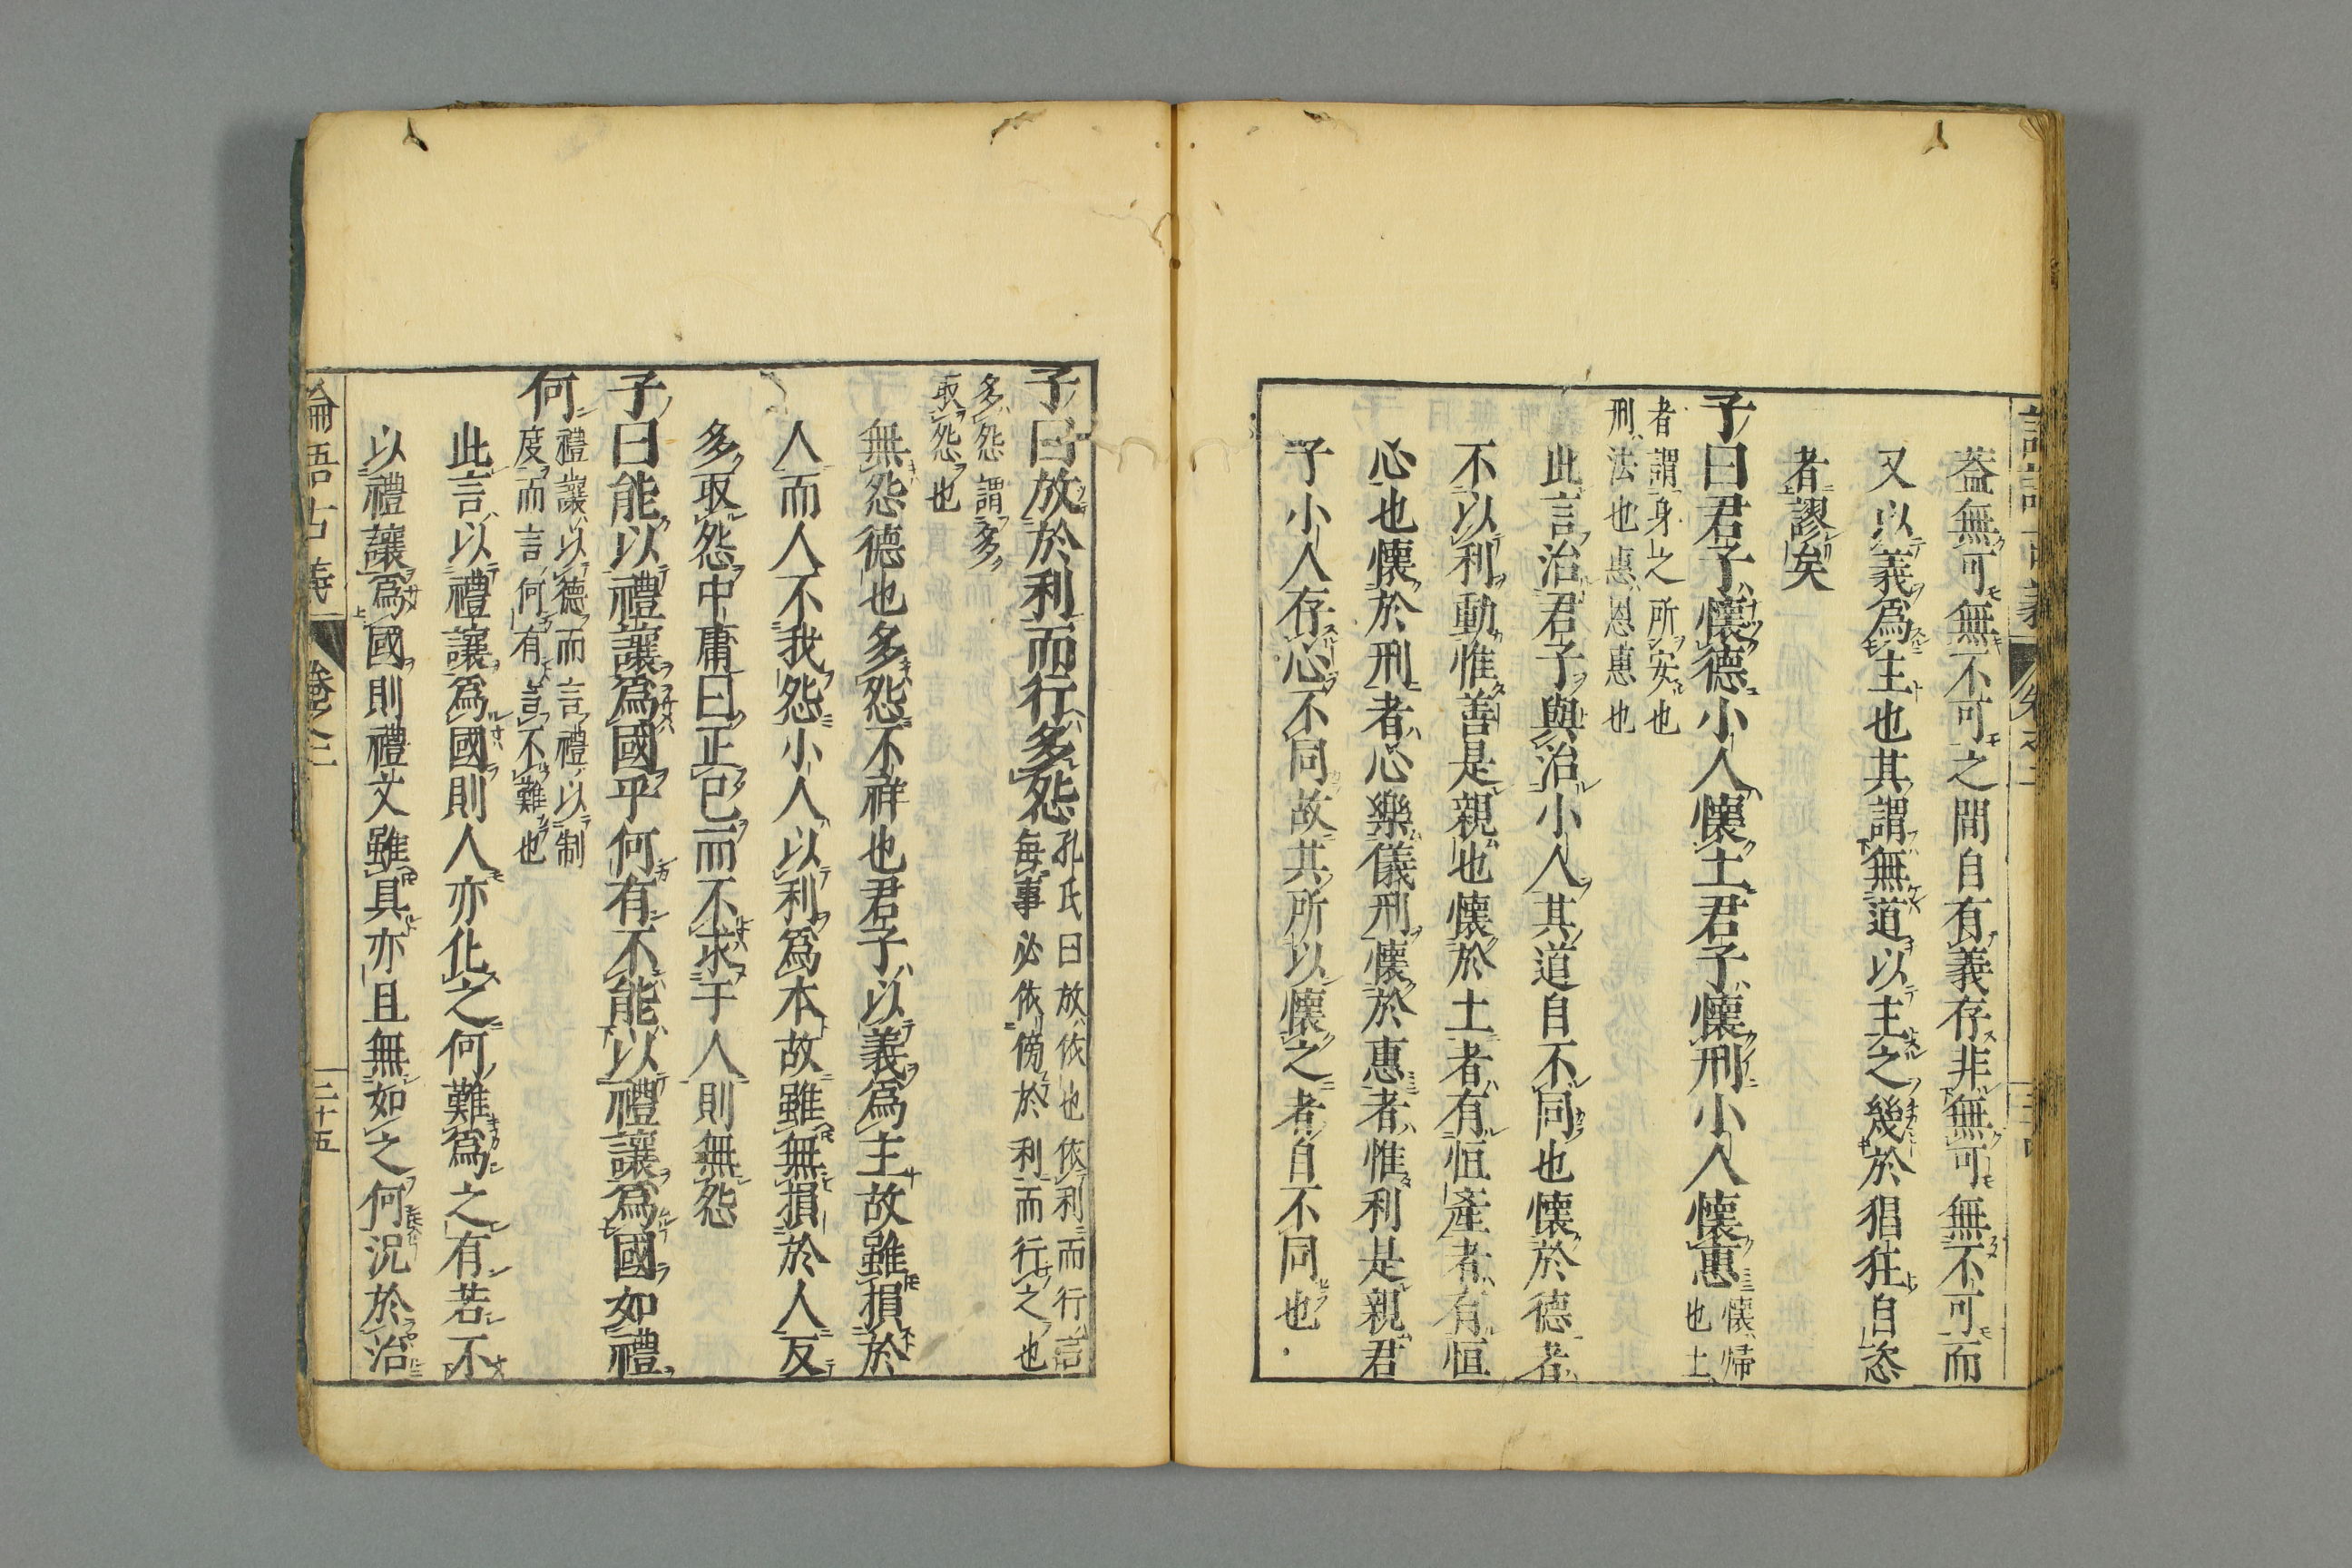 蓋無可無不可之間自有義存非無可無不可而
又以義爲主也其謂無道以主之幾於猖狂自恣
者謬矣
子曰君子懷德小人懷土君子懷刑小人懷惠
懷歸
也土
者謂身之所安也
刑法也惠恩惠也
此言治君子與治小人其道自不同也懷於德者
不以利動惟善是親也懷於土者有恒產者有恒
心也懷於刑者心樂儀刑懷於惠者惟利是親君
子小人存心不同故其所以懷之者自不同也
子曰放於利而行多怨
孔氏曰放依也依利而行言
每事必依傍於利而行之也
多怨謂多
取怨也
無怨德也多怨不祥也君子以義爲主故雖損於
人而人不我怨小人以利爲本故雖無損於人反
多取怨中庸曰正已而不求于人則無怨
子曰能以禮讓爲國乎何有不能以禮讓爲國如禮
何
禮讓以德而言禮以制
度而言何有言不難也
此言以禮讓爲國則人亦化之何難爲之有若不
以禮讓爲國則禮文雖具亦且無如之何況於治
論語古義
卷之二
二十五